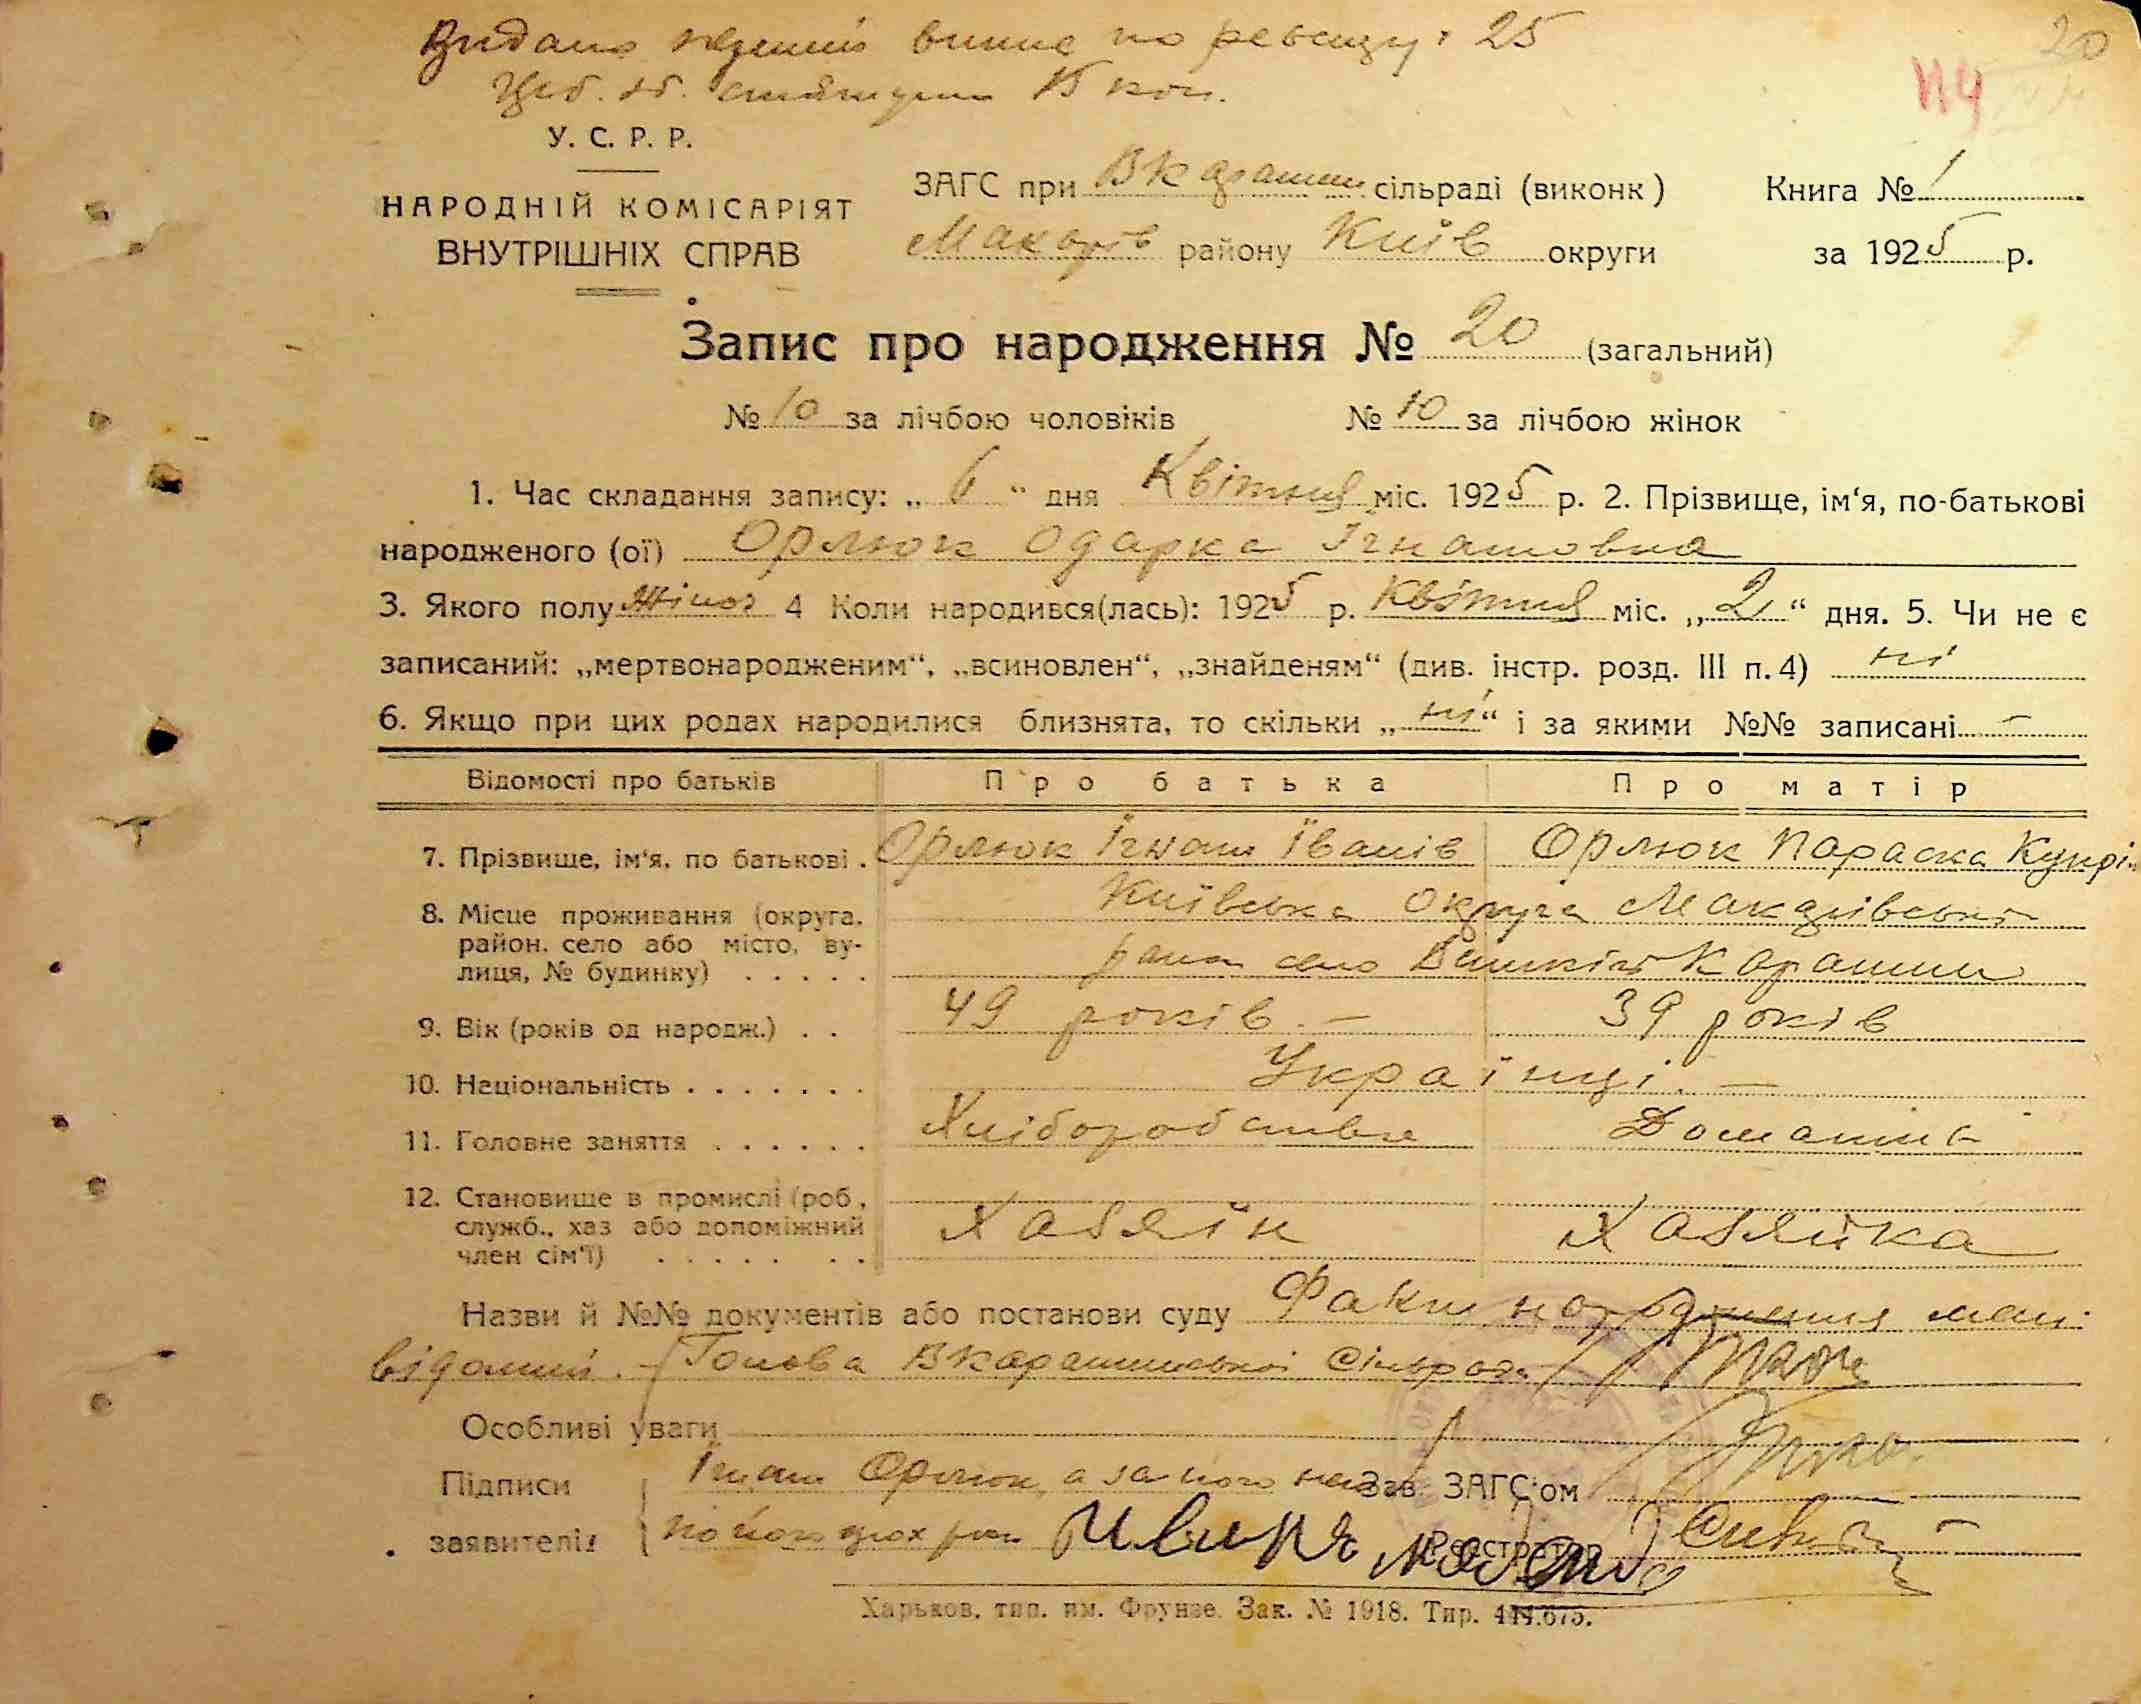 Видано
15 коп.
20
У. С. Р. Р.
НАРОДНІЙ КОМІСАРІЯТ
ВНУТРІШНІХ СПРАВ
ЗАГС при В Карашин сільраді (виконк)
Книга № 1
Макарів району Київ округи
за 1925 р.
Запис про народження № 20 (загальний)
№ 10 за лічбою чоловіків № 10 за лічбою жінок
1. Час складання запису: „ 6 “ дня Квітня міс. 1925 р. 2. Прізвище, ім‘я, по-батькові
народженого (ої) Орлюк Одарка Ігнатовна
3. Якого полу Жіноч 4 Коли народився(лась): 1925 р. Квітня міс. „ 2 “ дня. 5. Чи не є
записаний: „мертвонародженим“, „всиновлен“, „знайденям“ (див. інстр. розд. III п. 4) ні
6. Якщо при цих родах народилися близнята, то скільки „ ні “ і за якими №№ записані —
Відомості про батьків Про батька Про матір
7. Прізвище, ім‘я, по батькові . Орлюк Ігнат Іванів Орлюк Параска Купрі
8. Місце проживання (округа, Київська округа Макарівськ
район, село або місто, ву- село Карашин
лиця, № будинку) . . . . .
9. Вік (років од народж.) . . 49 років — 39 років
10. Національність . . . . . . . Українці —
11. Головне заняття . . . . . . Хліборобство Домашнє
12. Становище в промислі (роб.,
служб., хаз або допоміжний Хазяїн Хазяйка
член сім‘ї) . . . . . . .
Назви й №№ документів або постанови суду Факт народження мені
відомий. — Голова В Карашинської Сільради
Особливі уваги
Підписи Ігнат Орлюк, а за його Зав. ЗАГС‘ом
заявителів Реєстратор
Харьков, тип. им. Фрунзе. Зак. № 1918. Тир. 444.675.